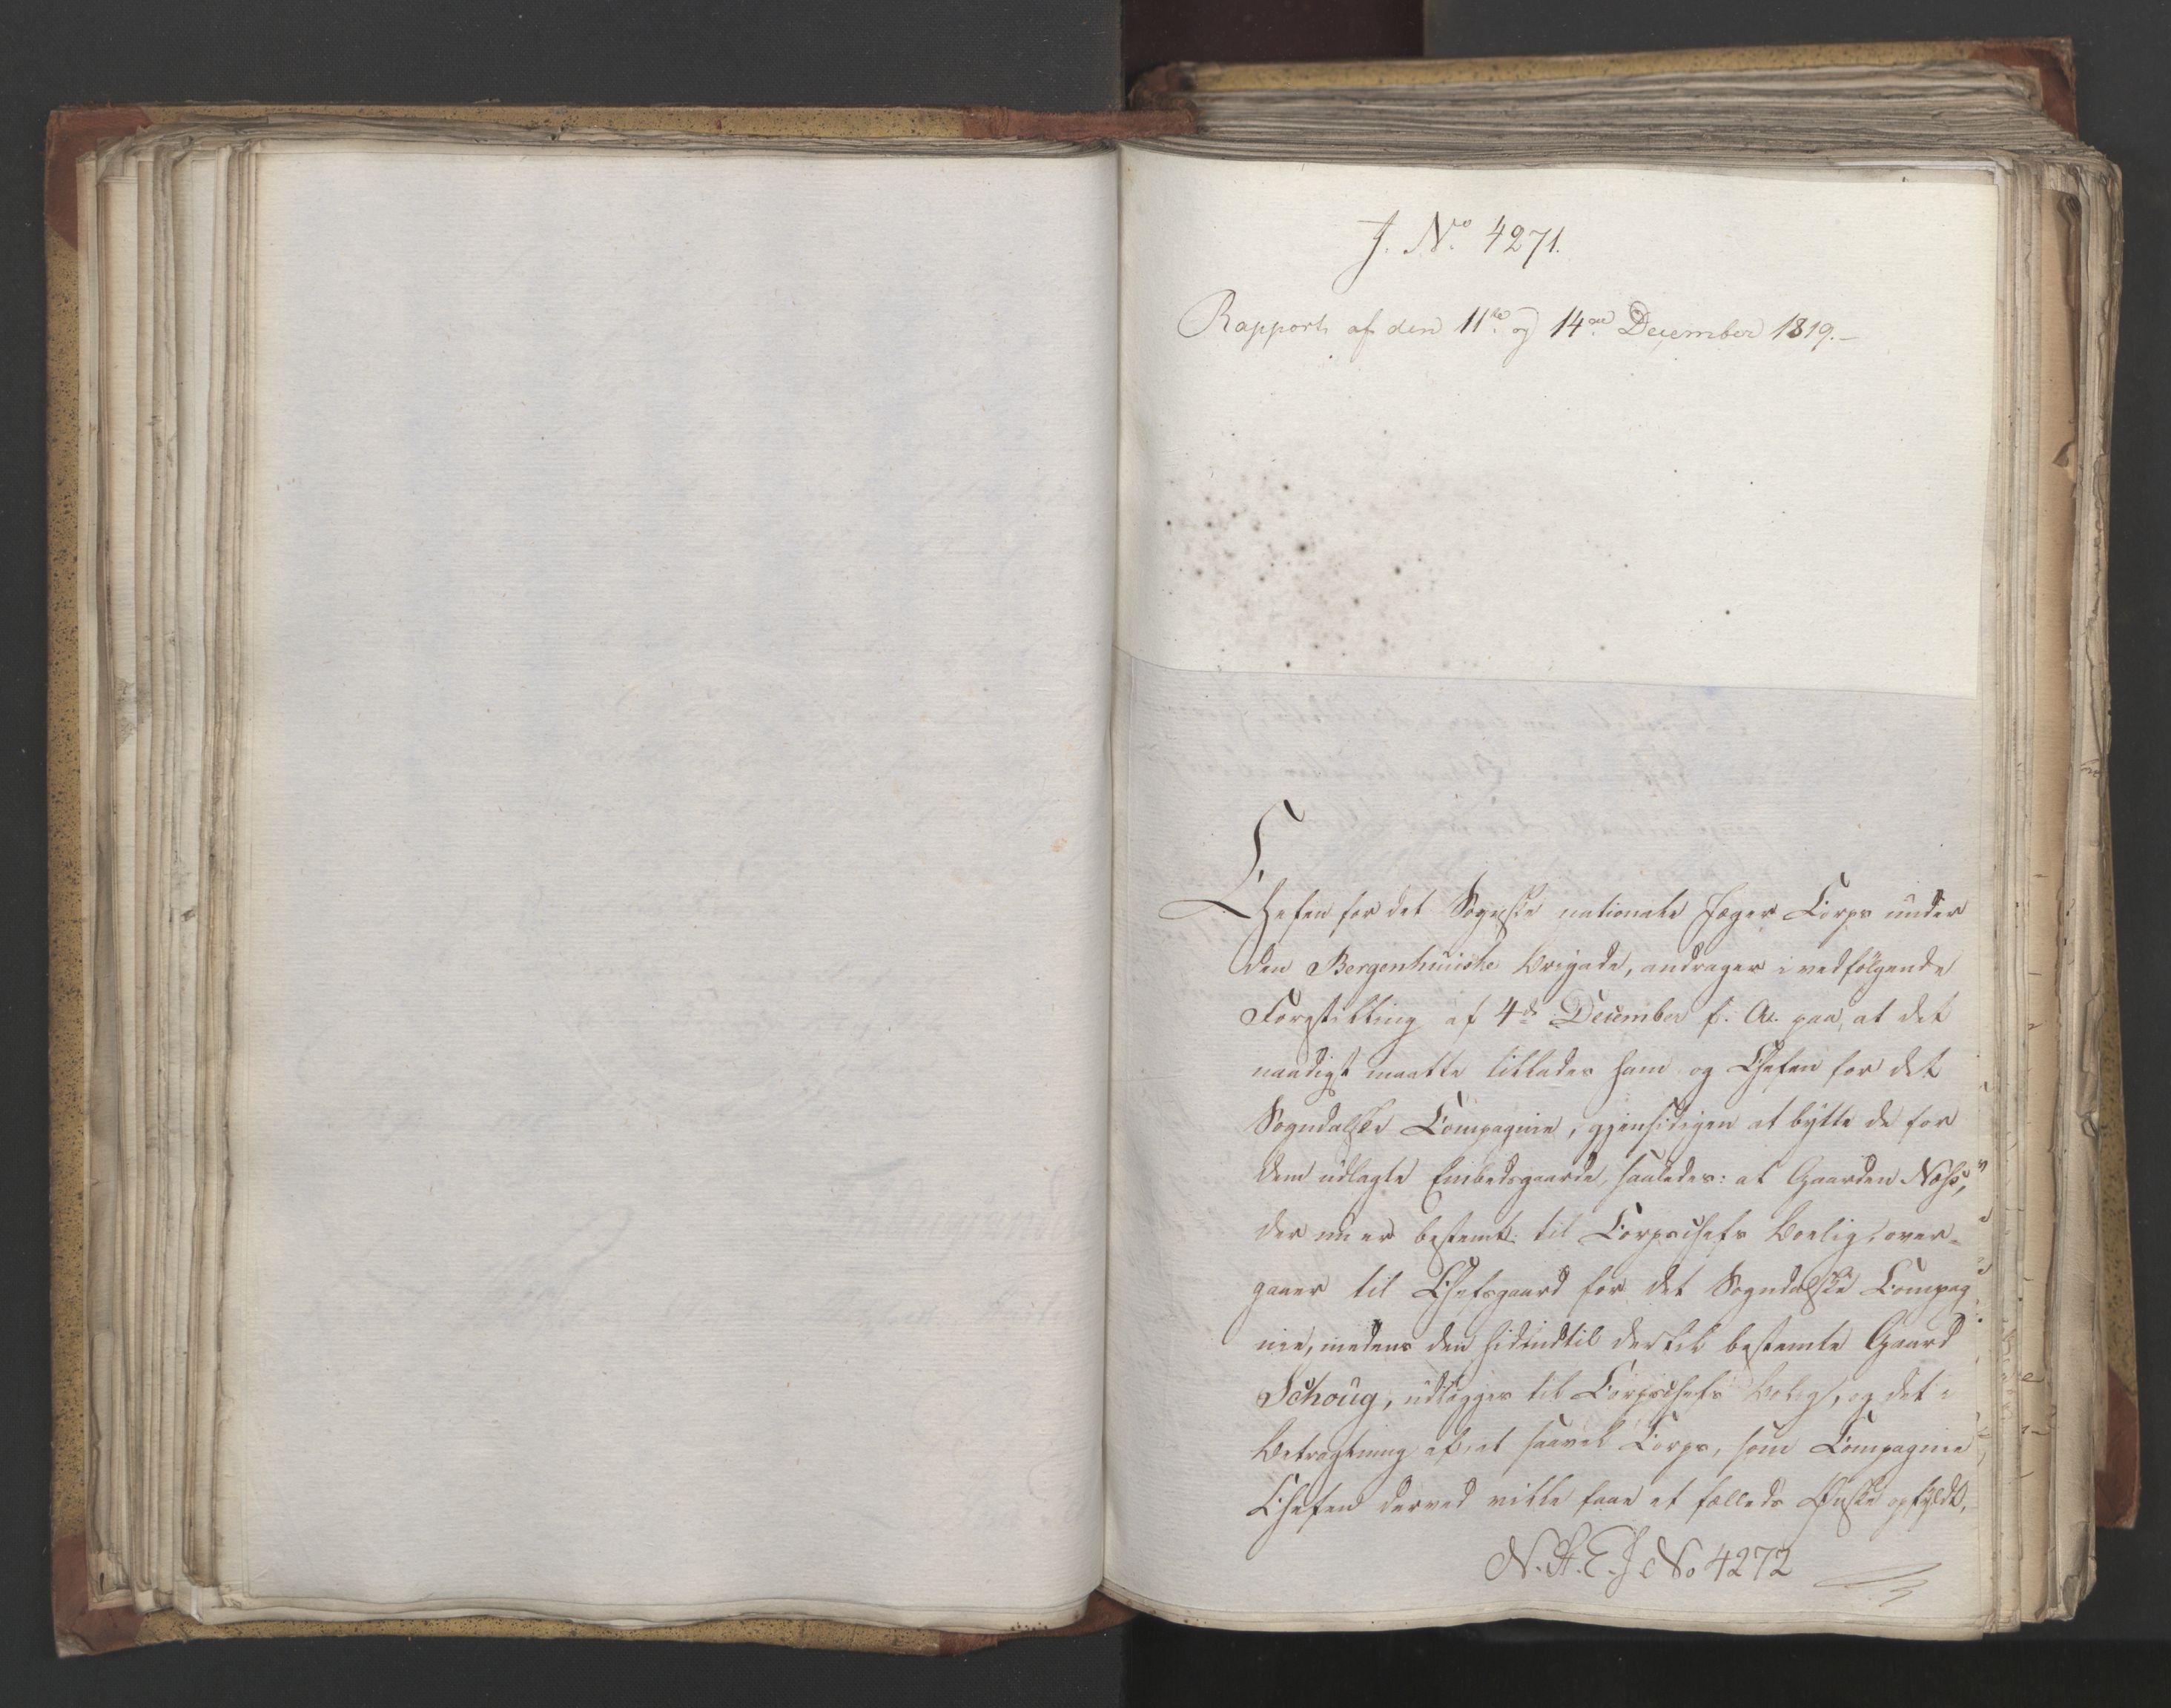 J. No. 4271.
Rapport af den 11te og 14de December 1819.-
Chefen for det Sognske nationale Jæger Corps under
den Bergenhuiske Brigade, andrager i vedfølgende
Forestilling af 4de December f. A. paa, at det
naadigst maatte tillades ham og Chefen for det
Sogndalske Compagnie, gjensidigen at bytte de for
dem udlagte Embedsgaarde, saaledes: at Gaarden Næss,
der nu er bestemt til Corpschefs Boelig, over-
gaaer til Chefsgaard for det Sogndalske Compag
nie, medens den hidindtil dertil bestemte Gaard
Schoug, udlægges til Corpschefs Bolig, og det i
Betragtning af, at saavel Corps, som Compagnie
Chefen derved ville faae et fælleds Ønske opfyldt,
N. A. E. J. No 4272